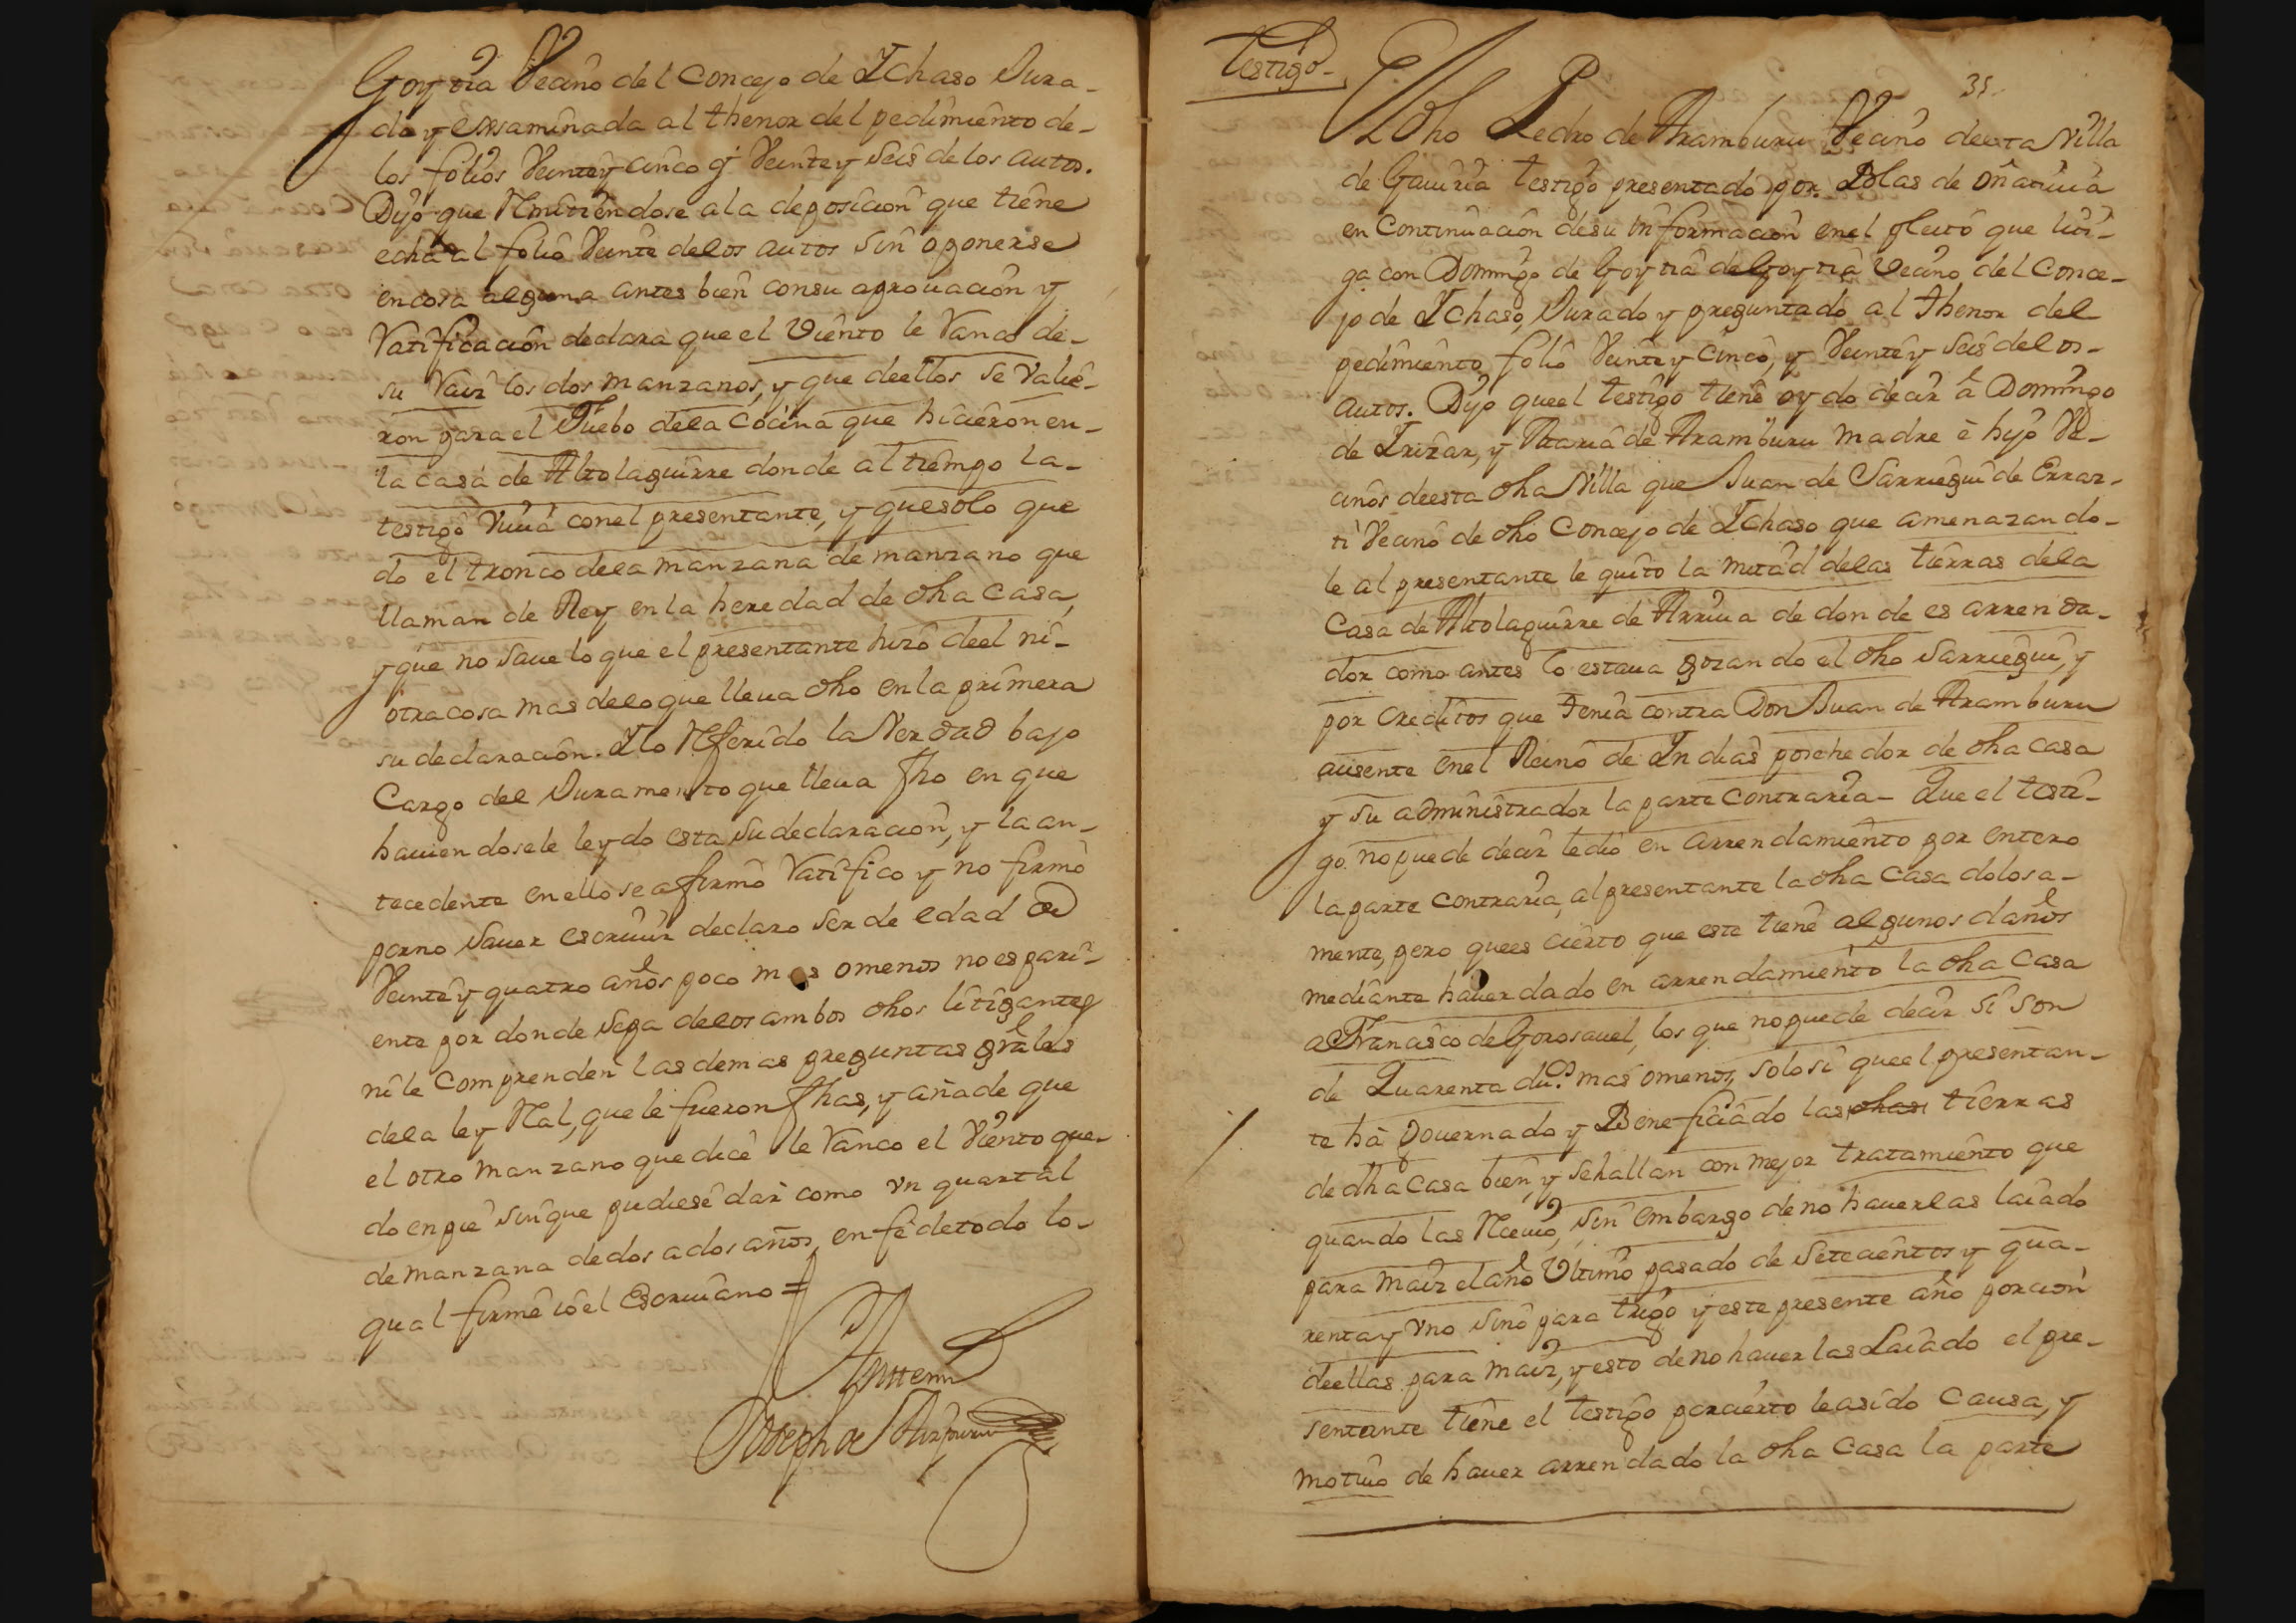 Goytia Vecino del Concejo de Ychaso Jura-
da y Exsaminada al thenor del pedimiento de-
los folios Veinte y cinco y Veinte y Seis de los autos.
Dijo que Rmitiendose a la deposicion que tiene
echa al folio Veinte de los autos sin oponerse
en cosa alguna antes bien con su aprouacion y
Ratificacion declara que el Viento le Ranco de-
su Raiz los dos manzanos, y que de ellos se Valie-
ron para el Fuebo de la Cocina que hicieron en-
la casa de Altolaguirre donde al tiempo la-
testigo Viuia con el presentante, y que solo que
do el tronco de la manzana de manzano que
llaman de Rey en la heredad de dha Casa,
y que no Saue lo que el presentante hizo de el ni-
otra cosa mas de lo que lleua dho en la primera
su declaracion. Y lo Rferido la Verdad bajo
Cargo del Juramento que lleua fho en que
hauiendosele leydo esta su declaracion, y la an-
tecedente en ello se afirmò Ratifico y no firmò
por no Sauer escriuir declaro Ser de edad de
Veinte y quatro años poco mas o menos no es pari-
ente por donde Sepa de los ambos dhos litigantes
ni le comprenden las demas preguntas grâles
de la ley Ral, que le fueron fhas, y añade que
el otro manzano que dice le Ranco el Viento que-
do en pie sin que pudiese dar como vn quartal
de manzana de dos a dos años, en fe de todo lo-
qual firmê io el Escriuano =
Antemi
Joseph de Aizpuru
Testigo
35.
El dho Pedro de Aramburu Vecino de esta Villa
de Gauiria testigo presentado por Blas de Oñatiuia
en Continuacion de su informacion en el pleito que liti-
ga con Domingo de Goytia de Goytia Vecino del Conce-
jo de Ychaso, Jurado y preguntado al thenor del
pedimiento folio Veinte y cinco, y Veinte y Seis de los-
autos. Dijo que el testigo tiene oydo decir â Domingo
de Irizar, y Maria de Aramburu madre è hijo Ve-
cinos de esta dha Villa que Juan de Sarriegui de Erraz-
ti Vecino de dho Concejo de Ychaso que amenazando-
le al presentante le quito la mitad de las tierras de la
Casa de Altolaguirre de Arriua de donde es arrenda-
dor como antes lo estaua gozando el dho Sarriegui, y
por creditos que tenia contra Don Juan de Aramburu
ausente en el Reino de Indias poseedor de dha Casa
y su administrador la parte contraria- Que el testi-
go no puede decir le dio en arrendamiento por entero
la parte contraria, al presentante la dha Casa dolosa-
mente, pero que es cierto que este tiene algunos daños
mediante hauer dado en arrendamiento la dha Casa
a Francisco de Gorosauel, los que no puede decir si son
de Quarenta du.s mas o menos, solo si que el presentan-
te hà gouernado y Beneficiado las dhas tierras
de dha Casa bien, y se hallan con mejor tratamiento que
quando las Rciuio, sin embargo de no hauerlas laiado
para maiz el año Vltimo pasado de Setecientos y qua-
renta y vno sino para trigo y este presente año porcion
de ellas para maiz, y esto de no hauerlas Laiado el pre-
sentante tiene el testigo por cierto le a sido Causa, y
motiuo de hauer arrendado la dha Casa la parte